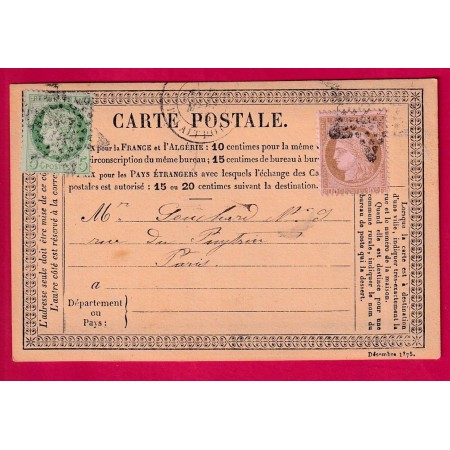 CARTE POSTALE.
pour la FRANCE et l'ALGÉRIE: 10 centimes pour la même
circonscription du même bureau; 15 centimes de bureau à bur
pour les PAYS ÉTRANGERS avec lesquels l'échange des Ca
postales est autorisé : 15 ou 20 centimes suivant la destination.
Mr Louchard No 9
rue du
Paris
a
Département
ou
Pays:
L'adresse seule doit être mise de ce cô
L'autre côté est réservé à la corre
Lorsque la carte est à destination
d'une ville, indiquer très-exactement la
rue et le numéro de la maison.
Quand elle est destinée pour une
commune rurale, indiquer le nom du
bureau de poste qui la dessert.
Décembre 1873.